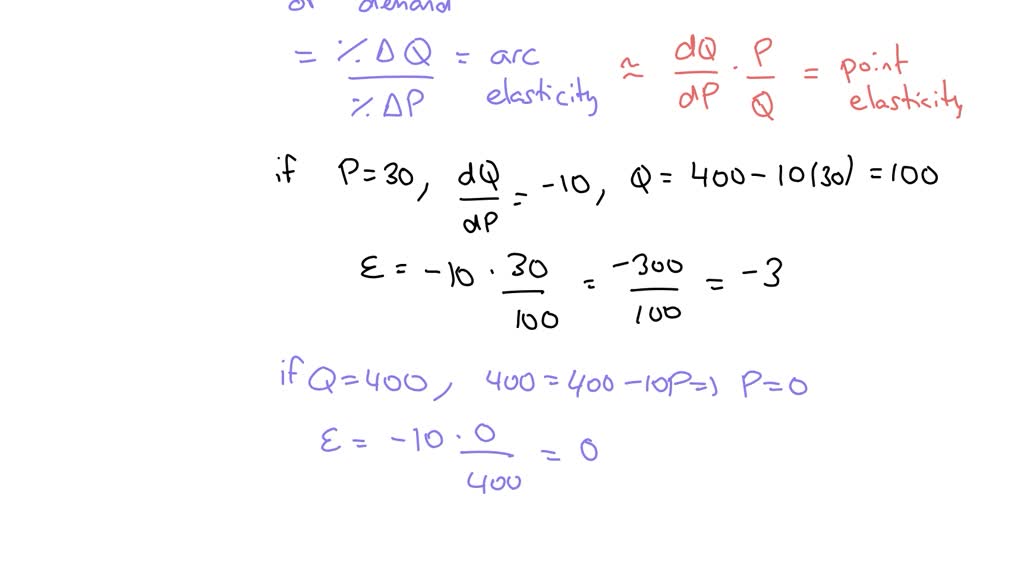 of demand
= %ΔQ / %ΔP = arc elasticity ≈ dQ/dP · P/Q = point elasticity
if P=30, dQ/dP = -10, Q = 400-10(30) = 100
ε = -10 · 30/100 = -300/100 = -3
if Q=400, 400=400-10P => P=0
ε = -10 · 0/400 = 0